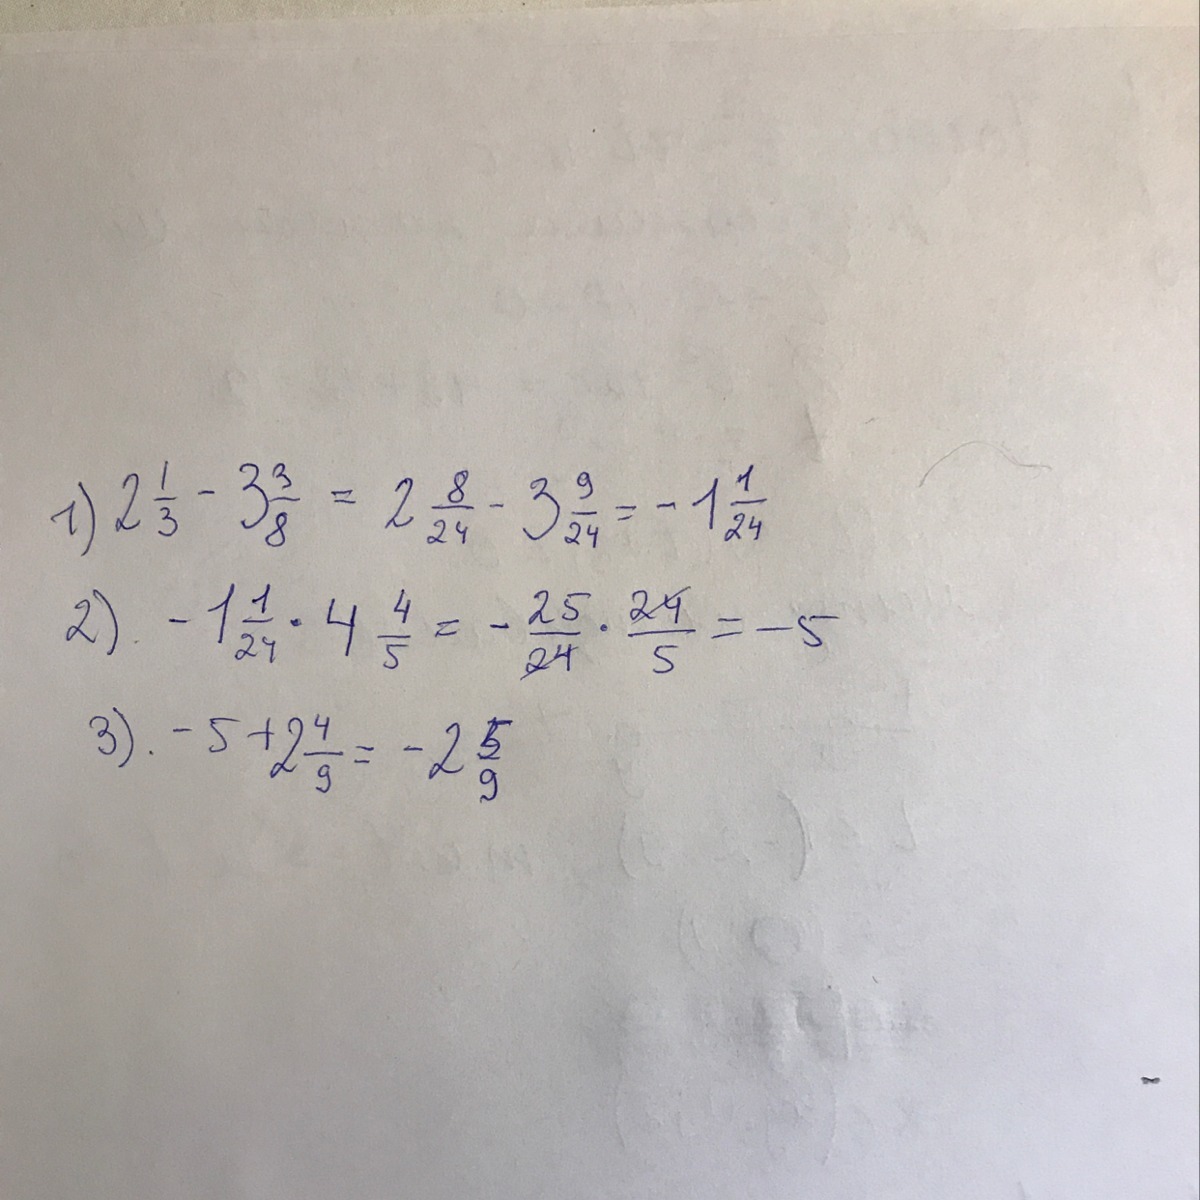 1) 2 1/3 - 3 3/8 = 2 8/24 - 3 9/24 = - 1 1/24
2). - 1 1/24 · 4 4/5 = - 25/24 · 24/5 = - 5
3). - 5 + 2 4/9 = - 2 5/9